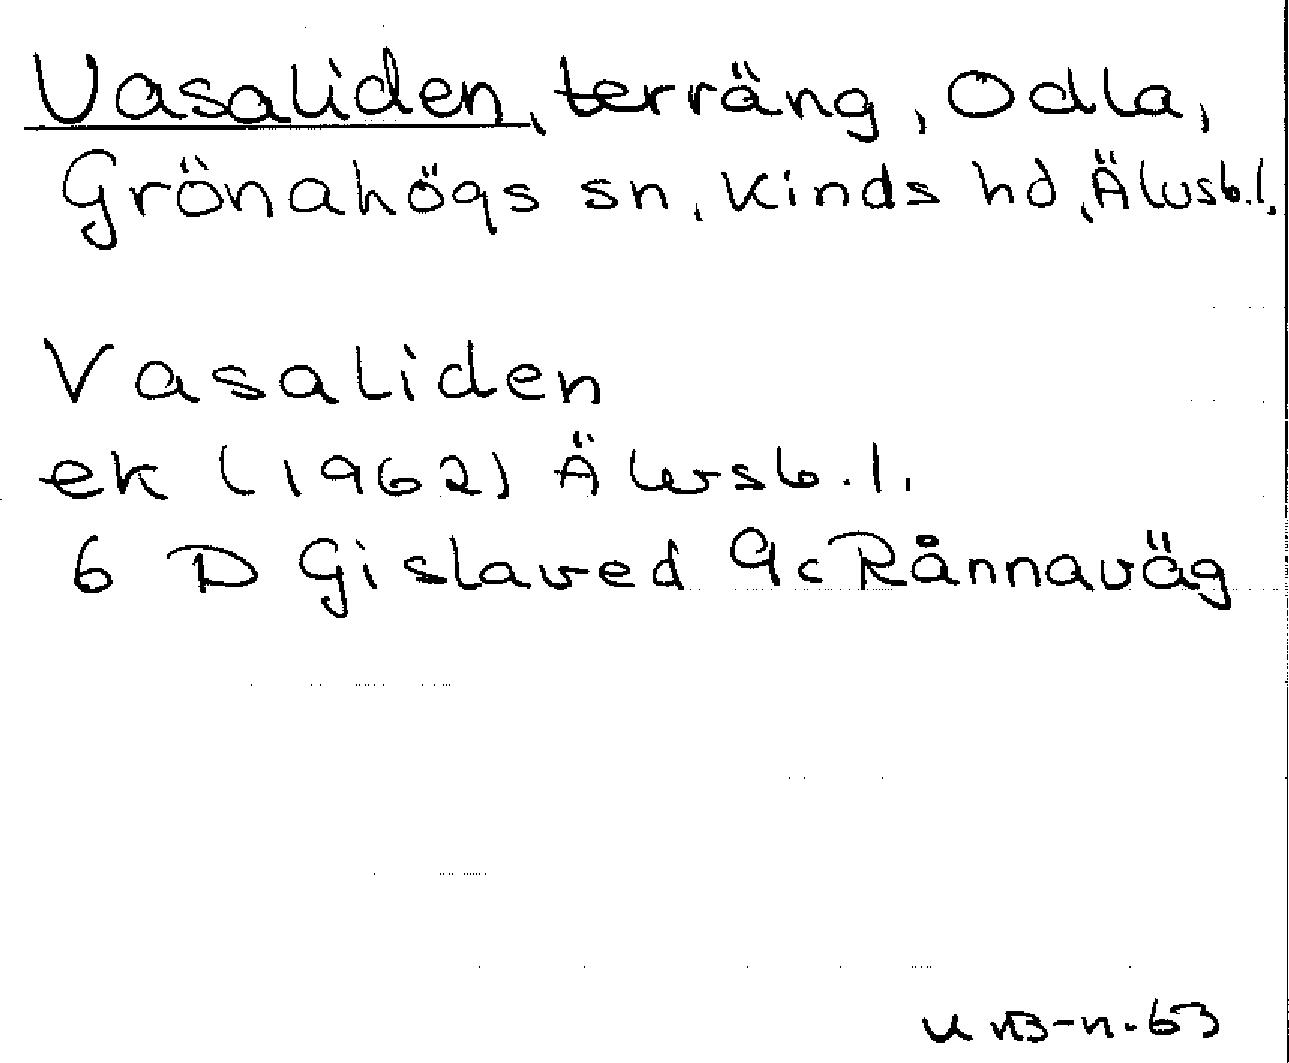 Vasaliden, terräng, Odla,
Grönahögs sn, Kinds hd, Älvsb.l.
Vasaliden
ek (1962) Älvsb.l.
6 D Gislaved 9c Rånnaväg
63